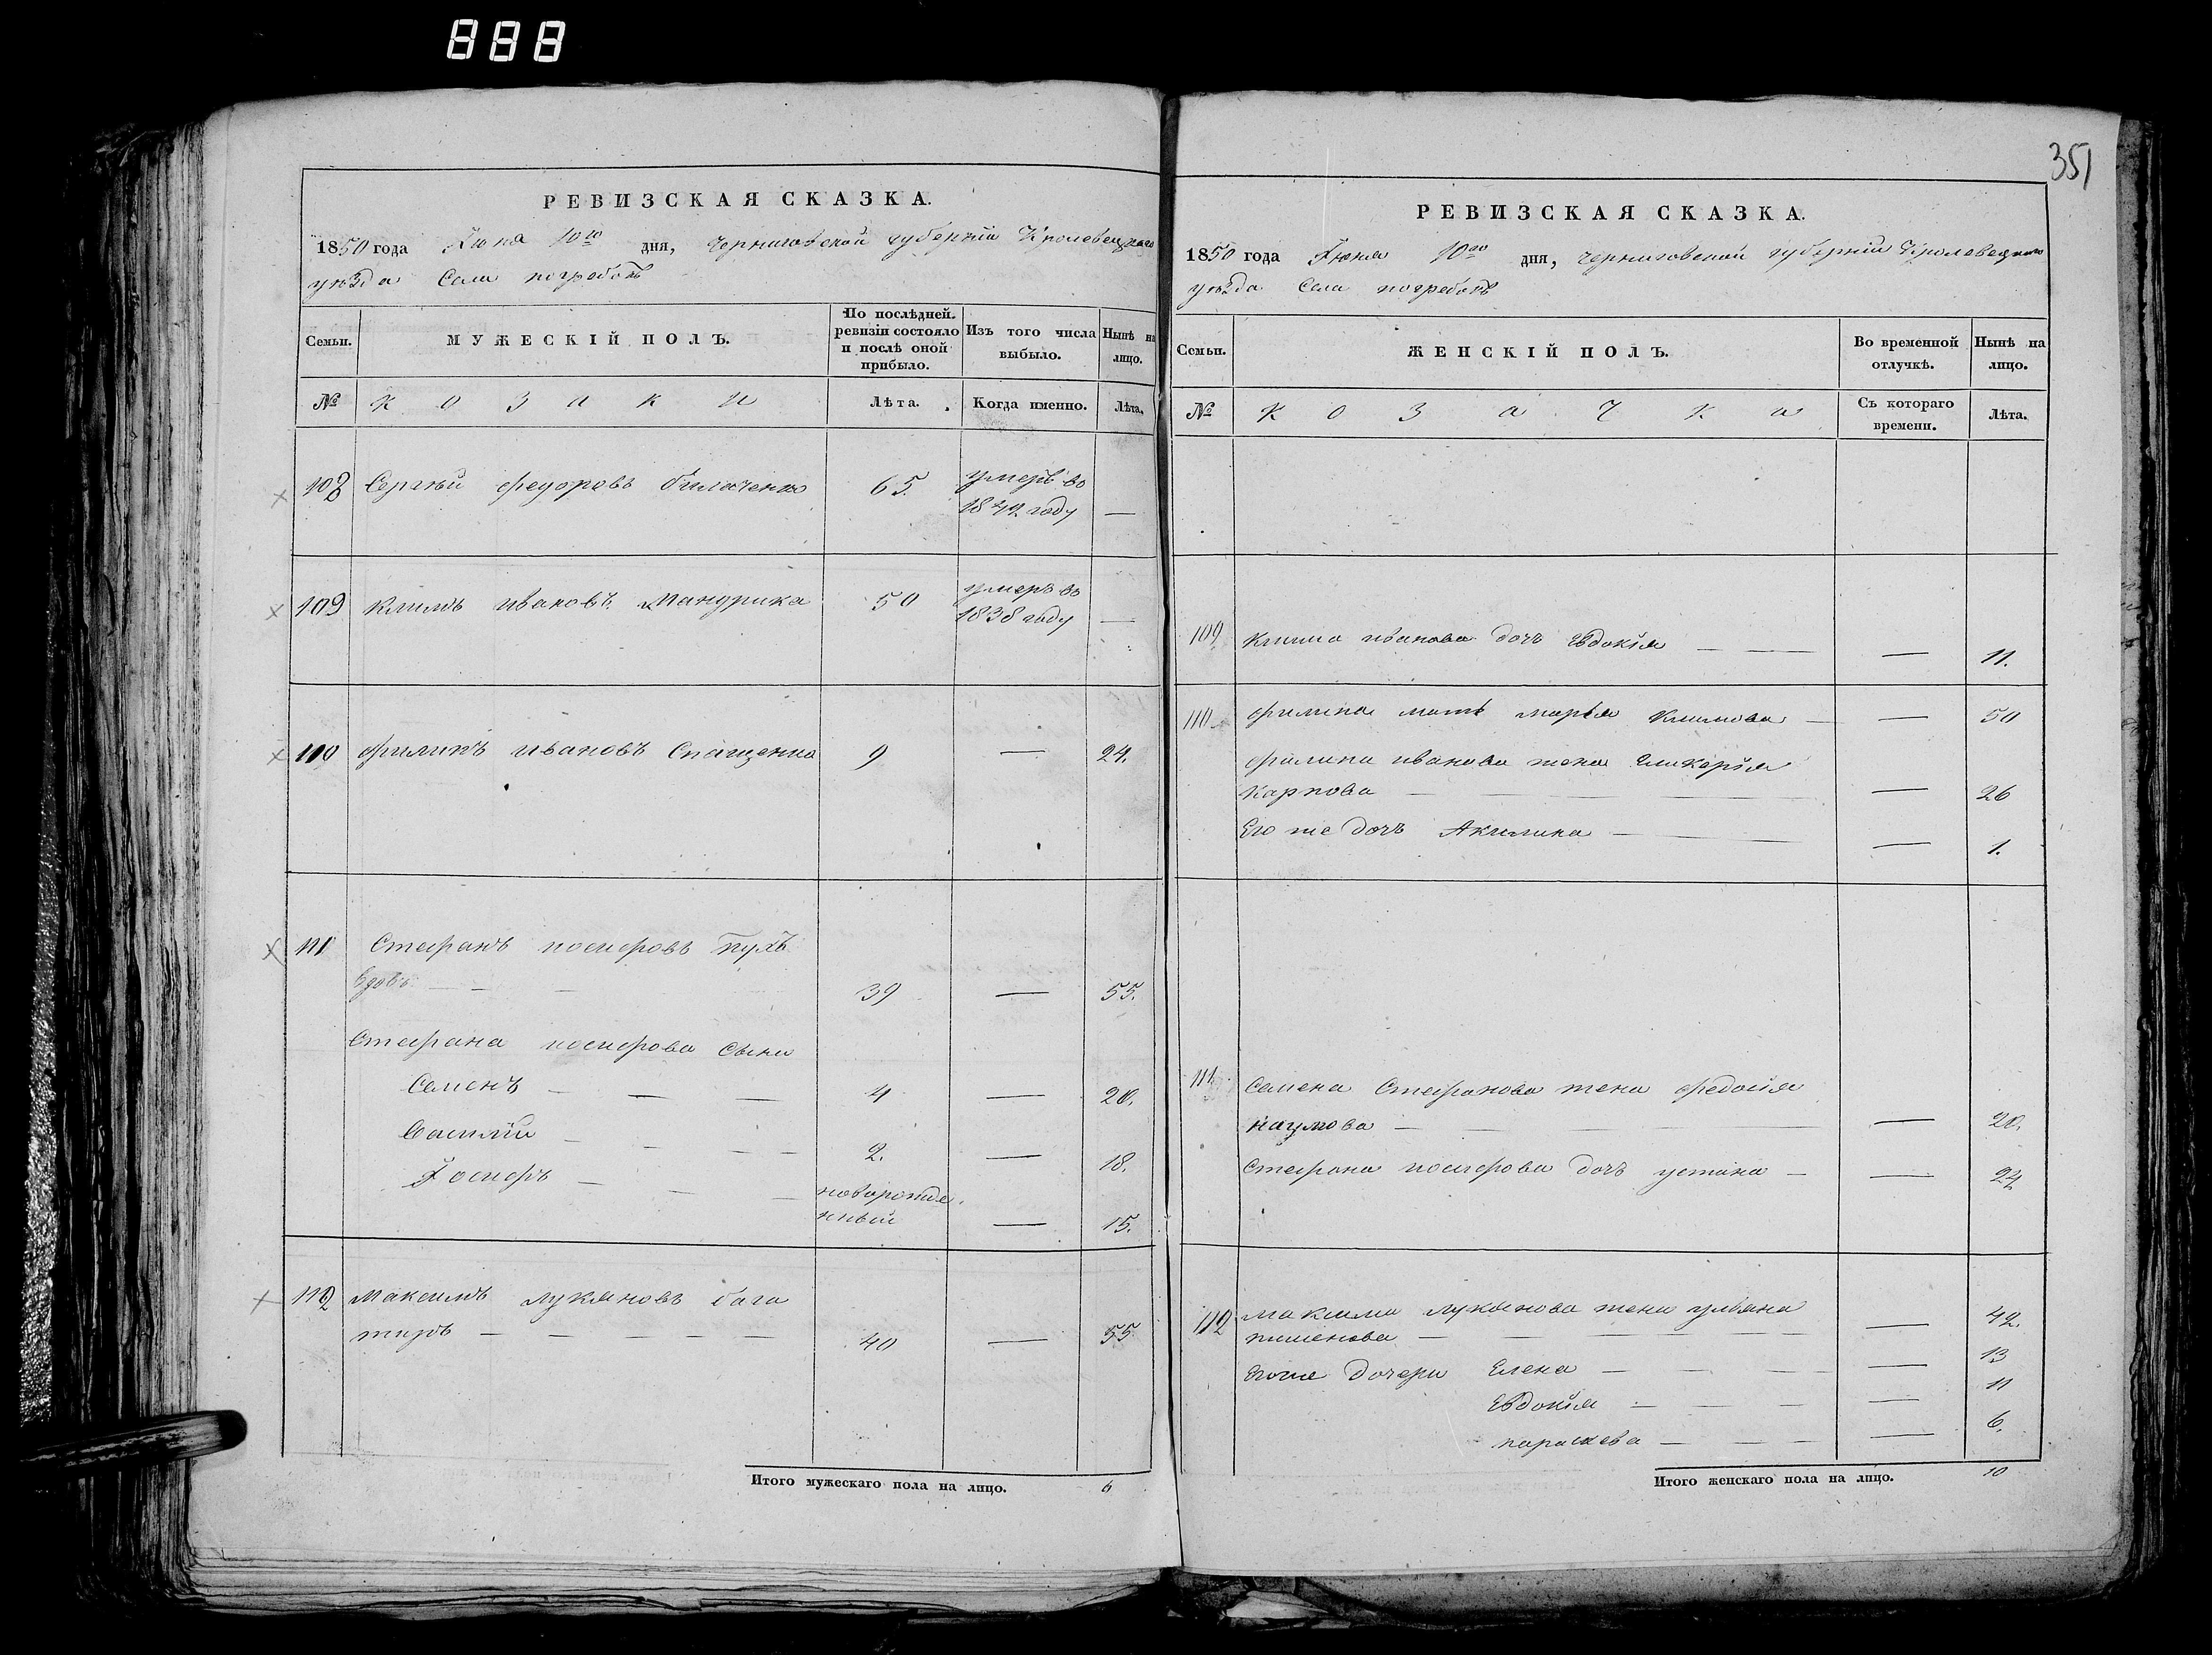 888
РЕВИЗСКАЯ СКАЗКА.
1850 года Іюня 10го дня, Черниговской губерніи Кролевецкаго
уѣзда Села погребокъ
Семьи. МУЖЕСКІЙ ПОЛЪ. По послѣдней ревизіи состояло и послѣ оной прибыло. Изъ того числа выбыло. Нынѣ на лицо.
№ козаки Лѣта. Когда именно. Лѣта.
108 Сергѣй федоровъ 65. умеръ во
1842 году —
109 климъ ивановъ Мандрика 50 умеръ во
1838 году —
110 филипъ ивановъ Спащенко 9 — 24.
111 Стефанъ иосифовъ пухъ
вдовъ — — — 39 — 55.
Стефана иосифова сыни
Семенъ — — — 4 — 20.
Василій — — — 2. — 18.
Іосифъ — — — новорожде
нный — 15.
112 максимъ лукяновъ бага
тыръ — — — — — 40 — 55
Итого мужескаго пола на лицо. 6
351
РЕВИЗСКАЯ СКАЗКА.
1850 года Іюня 10го дня, Черниговской губерніи Кролевецкаго
уѣзда Села погребокъ
Семьи. ЖЕНСКІЙ ПОЛЪ. Во временной отлучкѣ. Нынѣ на лицо.
№ козачки Съ котораго времени. Лѣта.
109 клима иванова дочъ Евдокія — — — 11.
110 филипа мать марія климова — — 50
филипа иванова жена Гликерія
карпова — — — — 26
Его же дочъ Акилина — — — 1.
111. Семена Стефанова жена федосія
наумова — — — — 20.
Стефана иосифова дочъ устина — — 24
112 максима лукянова жена уляна
пименова — — — — — 42.
Егоже дочери Елена — — — — 13
Евдокія — — — — 11
параскева — — — — 6.
Итого женскаго пола на лицо. 10